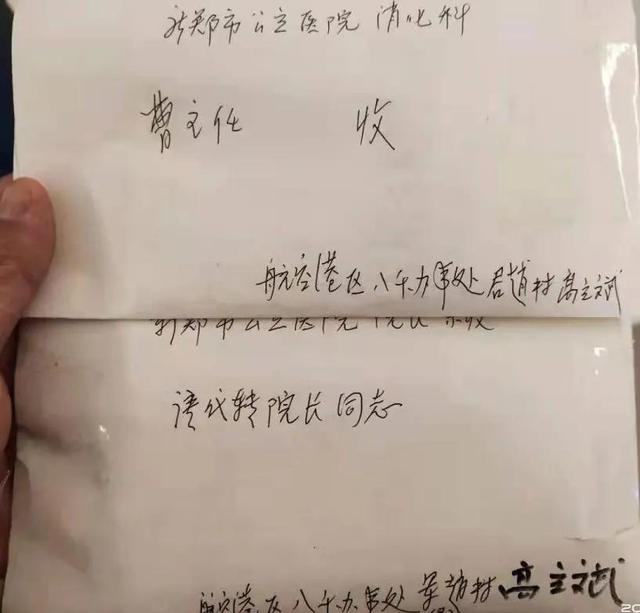 新郑市公立医院 消化科
曹主任 收
航空港区八千办事处君赵村高立斌
新郑市公立医院 院长 亲收
请代转院长同志
航空港区八千办事处 赵村 高立斌